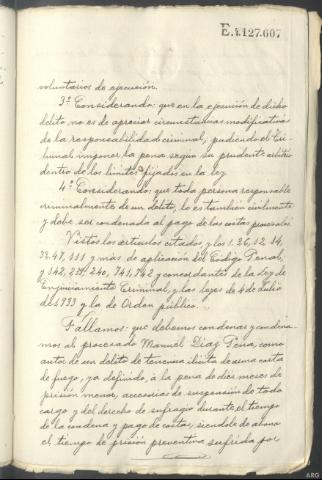 E.4.127.607
voluntarios de ejecución.
3º Considerando: que en la ejecución de dicho
delito no es de apreciar circunstancias modificativas
de la responsabilidad criminal, pudiendo el Tri-
bunal imponer la pena segun su prudente arbitrio
dentro de los limites fijados en la ley
4º Considerando: que toda persona responsable
criminalmente de un delito, lo es tambien civilmente
y debe ser condenada al pago de las costas procesales
Vistos los articulos citados y los 1. 26, 12. 14,
47, 111 y más de aplicación del Código Penal,
y 142, 239, 240, 741, 742 y concordantes de la Ley de
Enjuiciamiento Criminal, y las leyes de 4 de Julio
de 1933 y la de Orden público.
Fallamos: que debemos condenar y condena-
mos al procesado Manuel Diaz Peña, como
autor de un delito de tenencia ilicita de arma corta
de fuego, ya definido, á la pena de diez meses de
prisión menor, accesorias de suspensión de todo
cargo y del derecho de sufragio durante el tiempo
de la condena y pago de costas, siendole de abono
el tiempo de prisión preventiva sufrida por
ARG